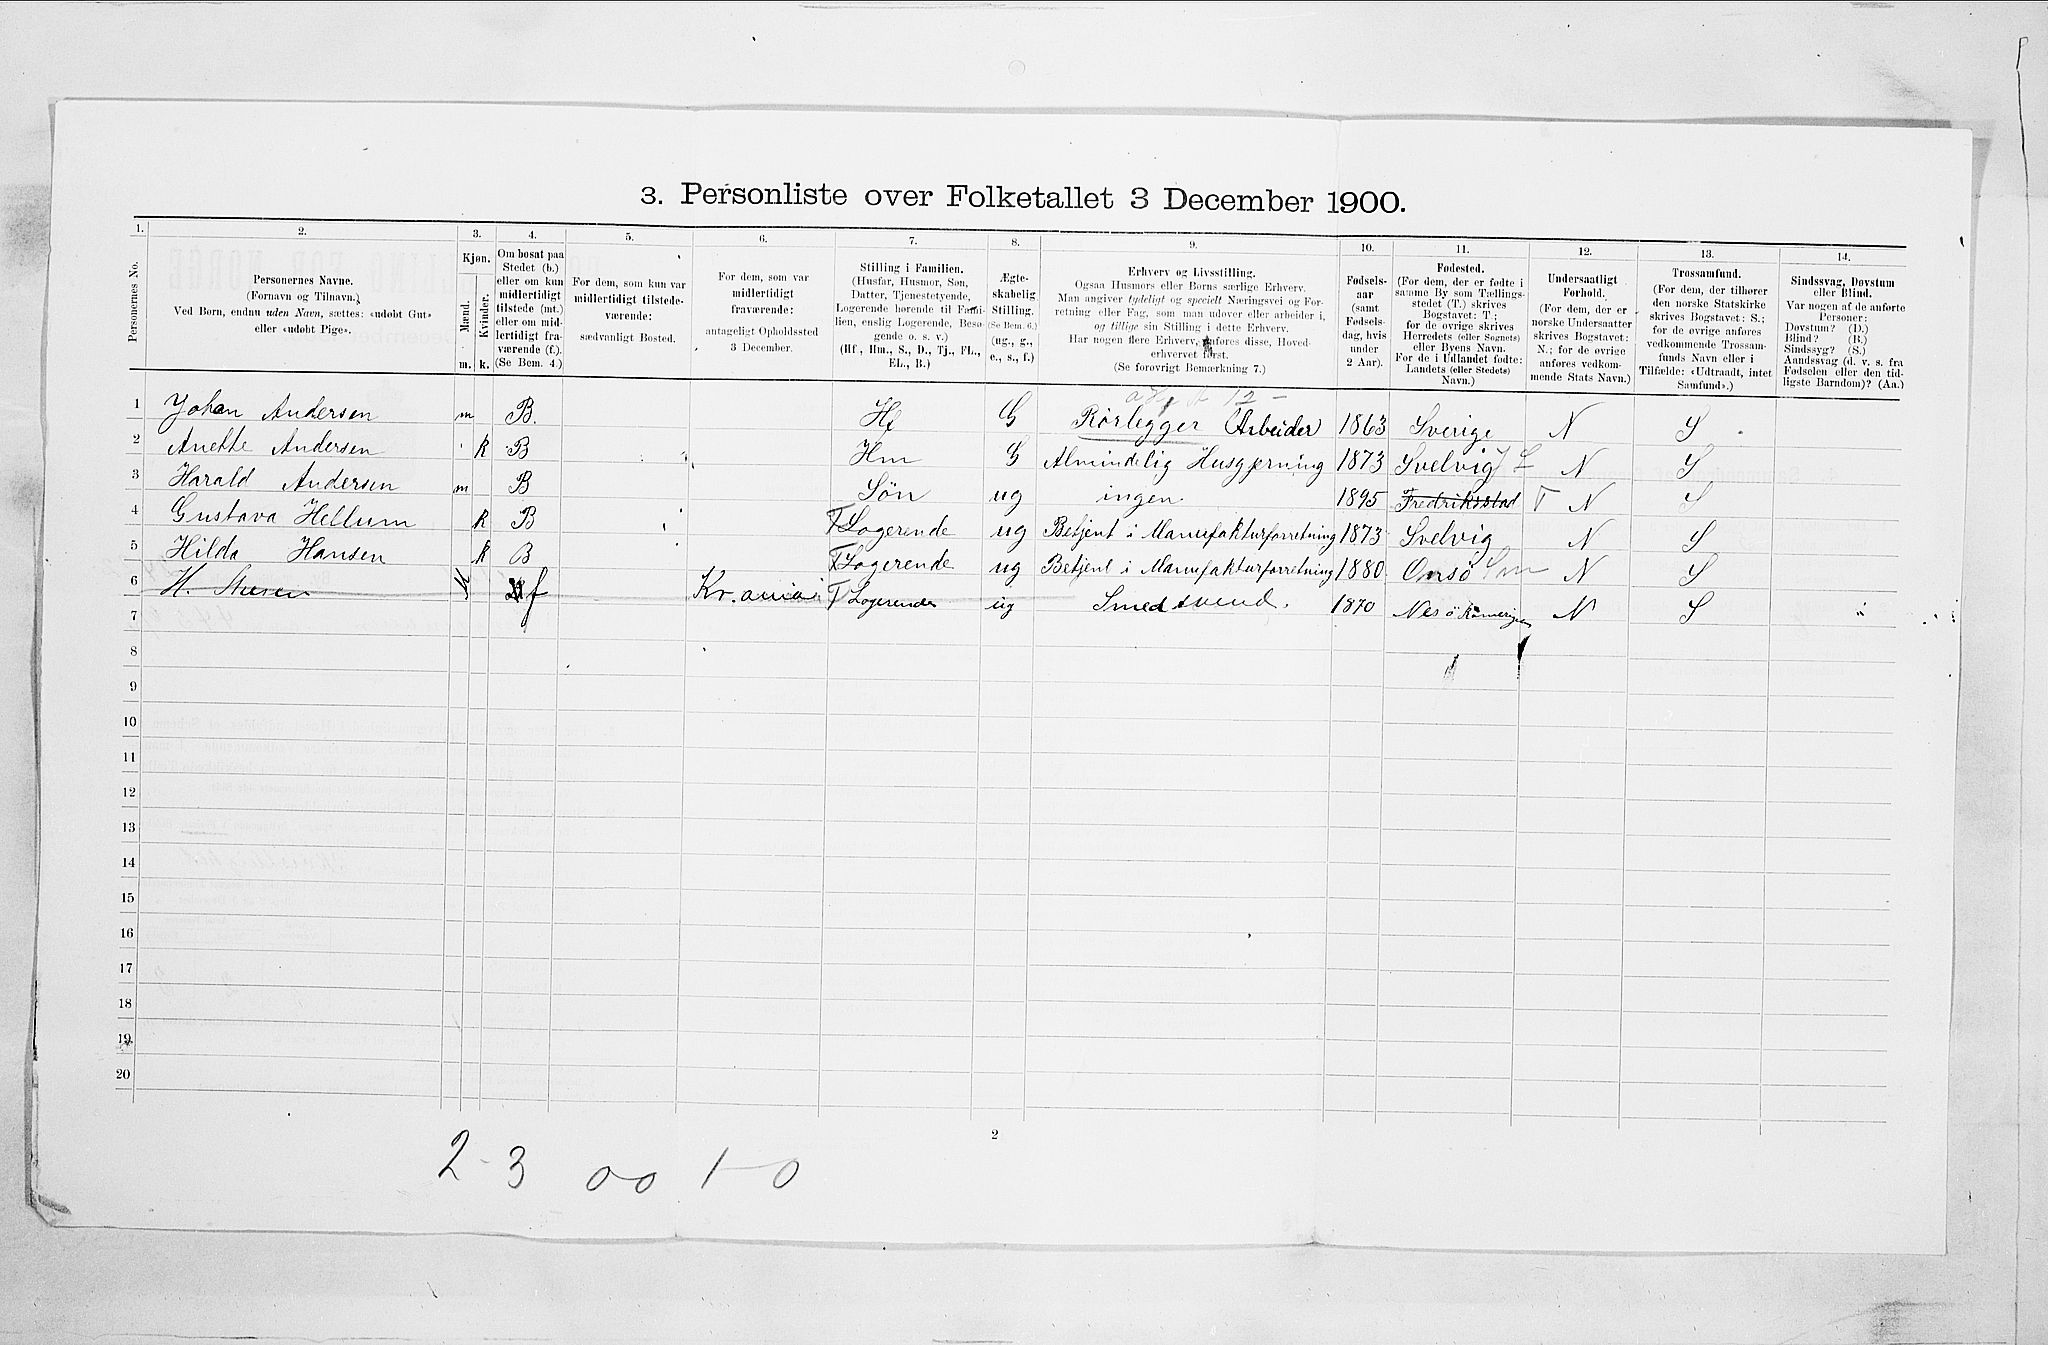 3. Personliste over Folketallet 3 December 1900.
1. 2. 3. 4. 5. 6. 7. 8. 9. 10. 11. 12. 13. 14.
Personernes No.
Personernes Navne.
(Fornavn og Tilnavn.)
Ved Børn, endnu uden Navn, sættes: «udøbt Gut»
eller «udøbt Pige».
Kjøn.
Mænd.
Kvinder.
m. k.
Om bosat paa
Stedet (b.)
eller om kun
midlertidigt
tilstede (mt.)
eller om mid-
lertidigt fra-
værende (f.).
(Se Bem. 4.)
For dem, som kun var
midlertidigt tilstede-
værende:
sædvanligt Bosted.
For dem, som var
midlertidigt
fraværende:
antageligt Opholdssted
3 December.
Stilling i Familien.
(Husfar, Husmor, Søn,
Datter, Tjenestetyende,
Logerende hørende til Fami-
lien, enslig Logerende, Besø-
gende o. s. v.)
(Hf., Hm., S., D., Tj., FL.,
EL., B.)
Ægte-
skabelig
Stilling.
(Se Bem. 6.)
(ug., g.,
e., s., f.)
Erhverv og Livsstilling.
Ogsaa Husmors eller Børns særlige Erhverv.
Man angiver tydeligt og specielt Næringsvei og For-
retning eller Fag, som man udøver eller arbeider i,
og tillige sin Stilling i dette Erhverv.
Har nogen flere Erhverv, anføres disse, Hoved-
erhvervet først.
(Se forøvrigt Bemærkning 7.)
Fødsels-
aar
(samt
Fødsels-
dag, hvis
under
2 Aar).
Fødested.
(For dem, der er fødte i
samme By som Tællings-
stedet (T.) skrives
Bogstavet: T.;
for de øvrige skrives
Herredets (eller Sognets)
eller Byens Navn.
For de i Udlandet fødte:
Landets (eller Stedets)
Navn.)
Undersaatligt
Forhold.
(For dem, der er
norske Undersaatter
skrives Bogstavet:
N.; for de øvrige
anføres vedkom-
mende Stats Navn.)
Trossamfund.
(For dem, der tilhører
den norske Statskirke
skrives Bogstavet: S.;
for de øvrige anføres
vedkommende Trossam-
funds Navn eller i
Tilfælde: «Udtraadt, intet
Samfund».)
Sindssvag, Døvstum
eller Blind.
Var nogen af de anførte
Personer:
Døvstum? (D.)
Blind? (B.)
Sindssyg? (S.)
Aandssvag (d. v. s. fra
Fødselen eller den tid-
ligste Barndom)? (Aa.)
1 Johan Andersen m B. Hf G Rørlegger Arbeider 1863 Sverige N S
2 Anette Andersen k B Hm G Almindelig Husgjerning 1873 Svelvig N S
3 Harald Andersen m B Søn ug ingen 1895 Fredriksstad T N S
4 Gustava Hellum k B F Logerende ug Betjent i Manufakturforretning 1873 Svelvig N S
5 Hilda Hansen k B F Logerende ug Betjent i Manufakturforretning 1880 Onsö N S
6 H. M f Kr.ania F Logerende ug Smedsvend. 1870 Nes N S
7
8
9
10
11
12
13
14
15
16
17
18
19
20
2
2-3 00 1-0